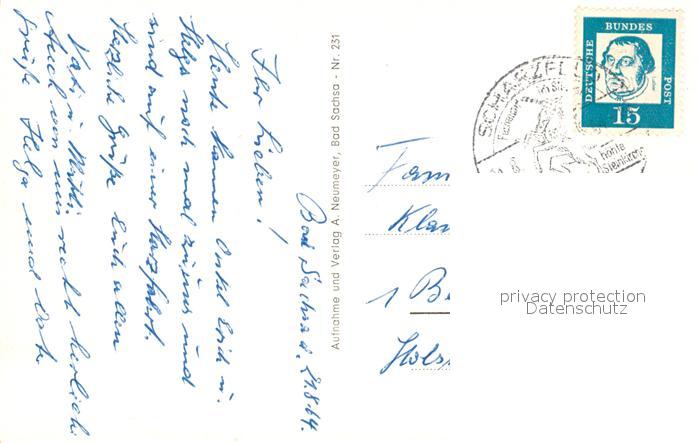 Bad Sachsa d. 21.8.64.
Ihr Lieben!
Heute kamen Onkel Erich u.
Helga noch mal zu uns und
sind auf einer Harzfahrt.
Herzliche Grüße Euch allen
Vati u. Mutti.
Auch von uns recht herzliche
Grüße Helga und
Aufnahme und Verlag A. Neumeyer, Bad Sachsa - Nr. 231
DEUTSCHE
BUNDES
POST
15
SCHARZFELD
Fam
Kla
1 B
Hols
privacy protection
Datenschutz